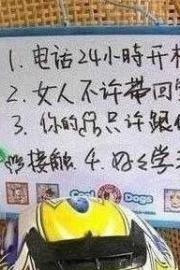 1. 电话24小時开机
2. 女人不许带回
3. 你的只许跟
接触 4. 好々学
Cool Dogs